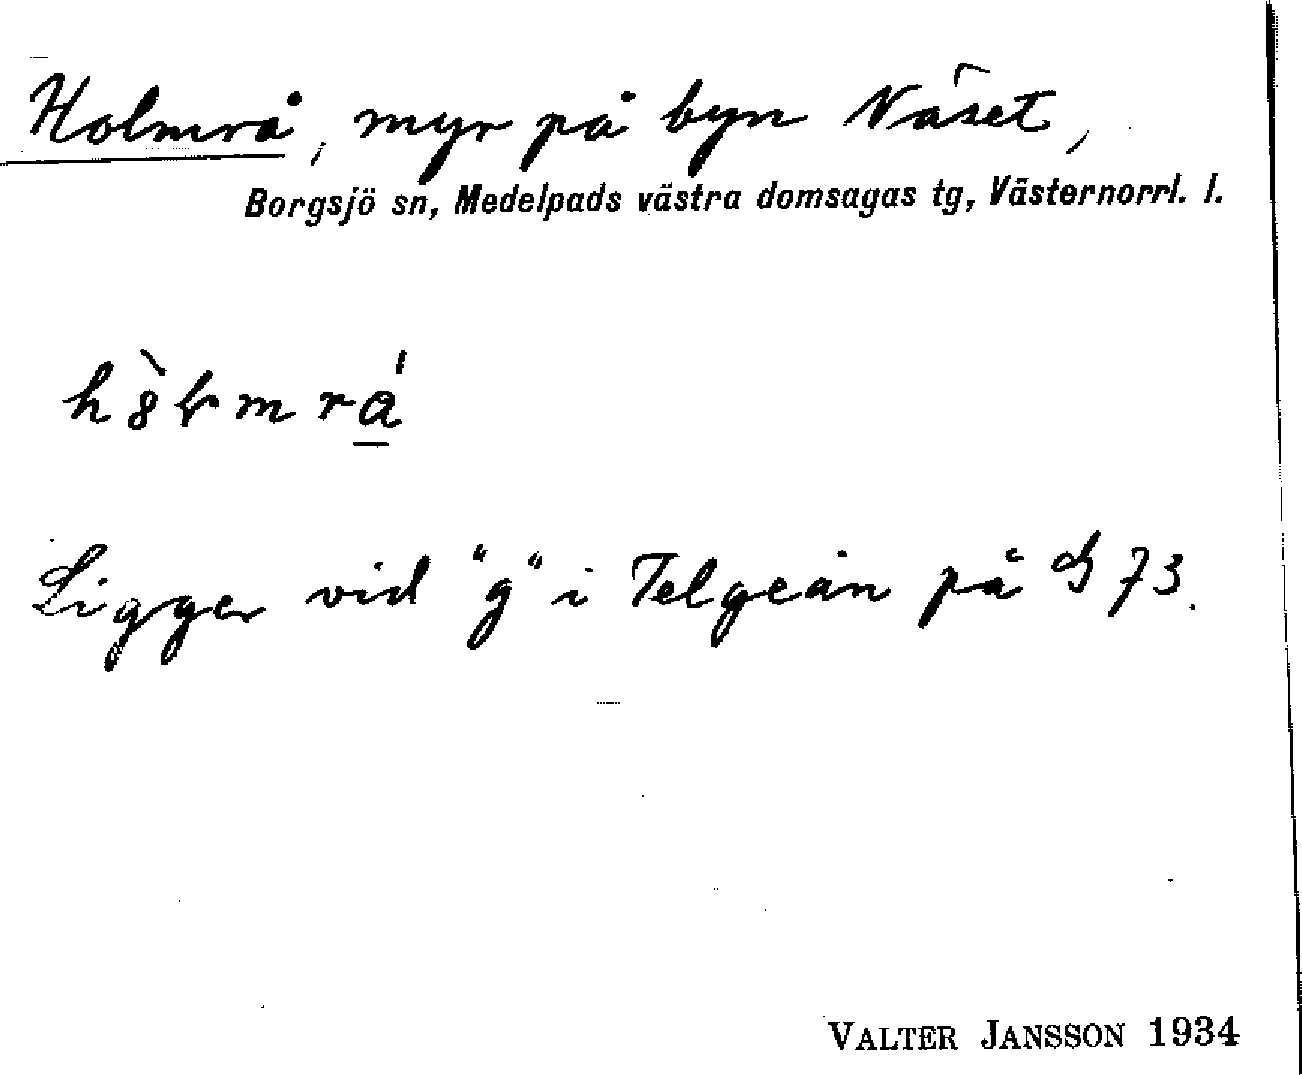 Holmrå, myr på byn Näset,
Borgsjö sn, Medelpads västra domsagas tg, Västernorrl. l.
Ligger vid "g" i Telgeån på S 73.
VALTER JANSSON 1934